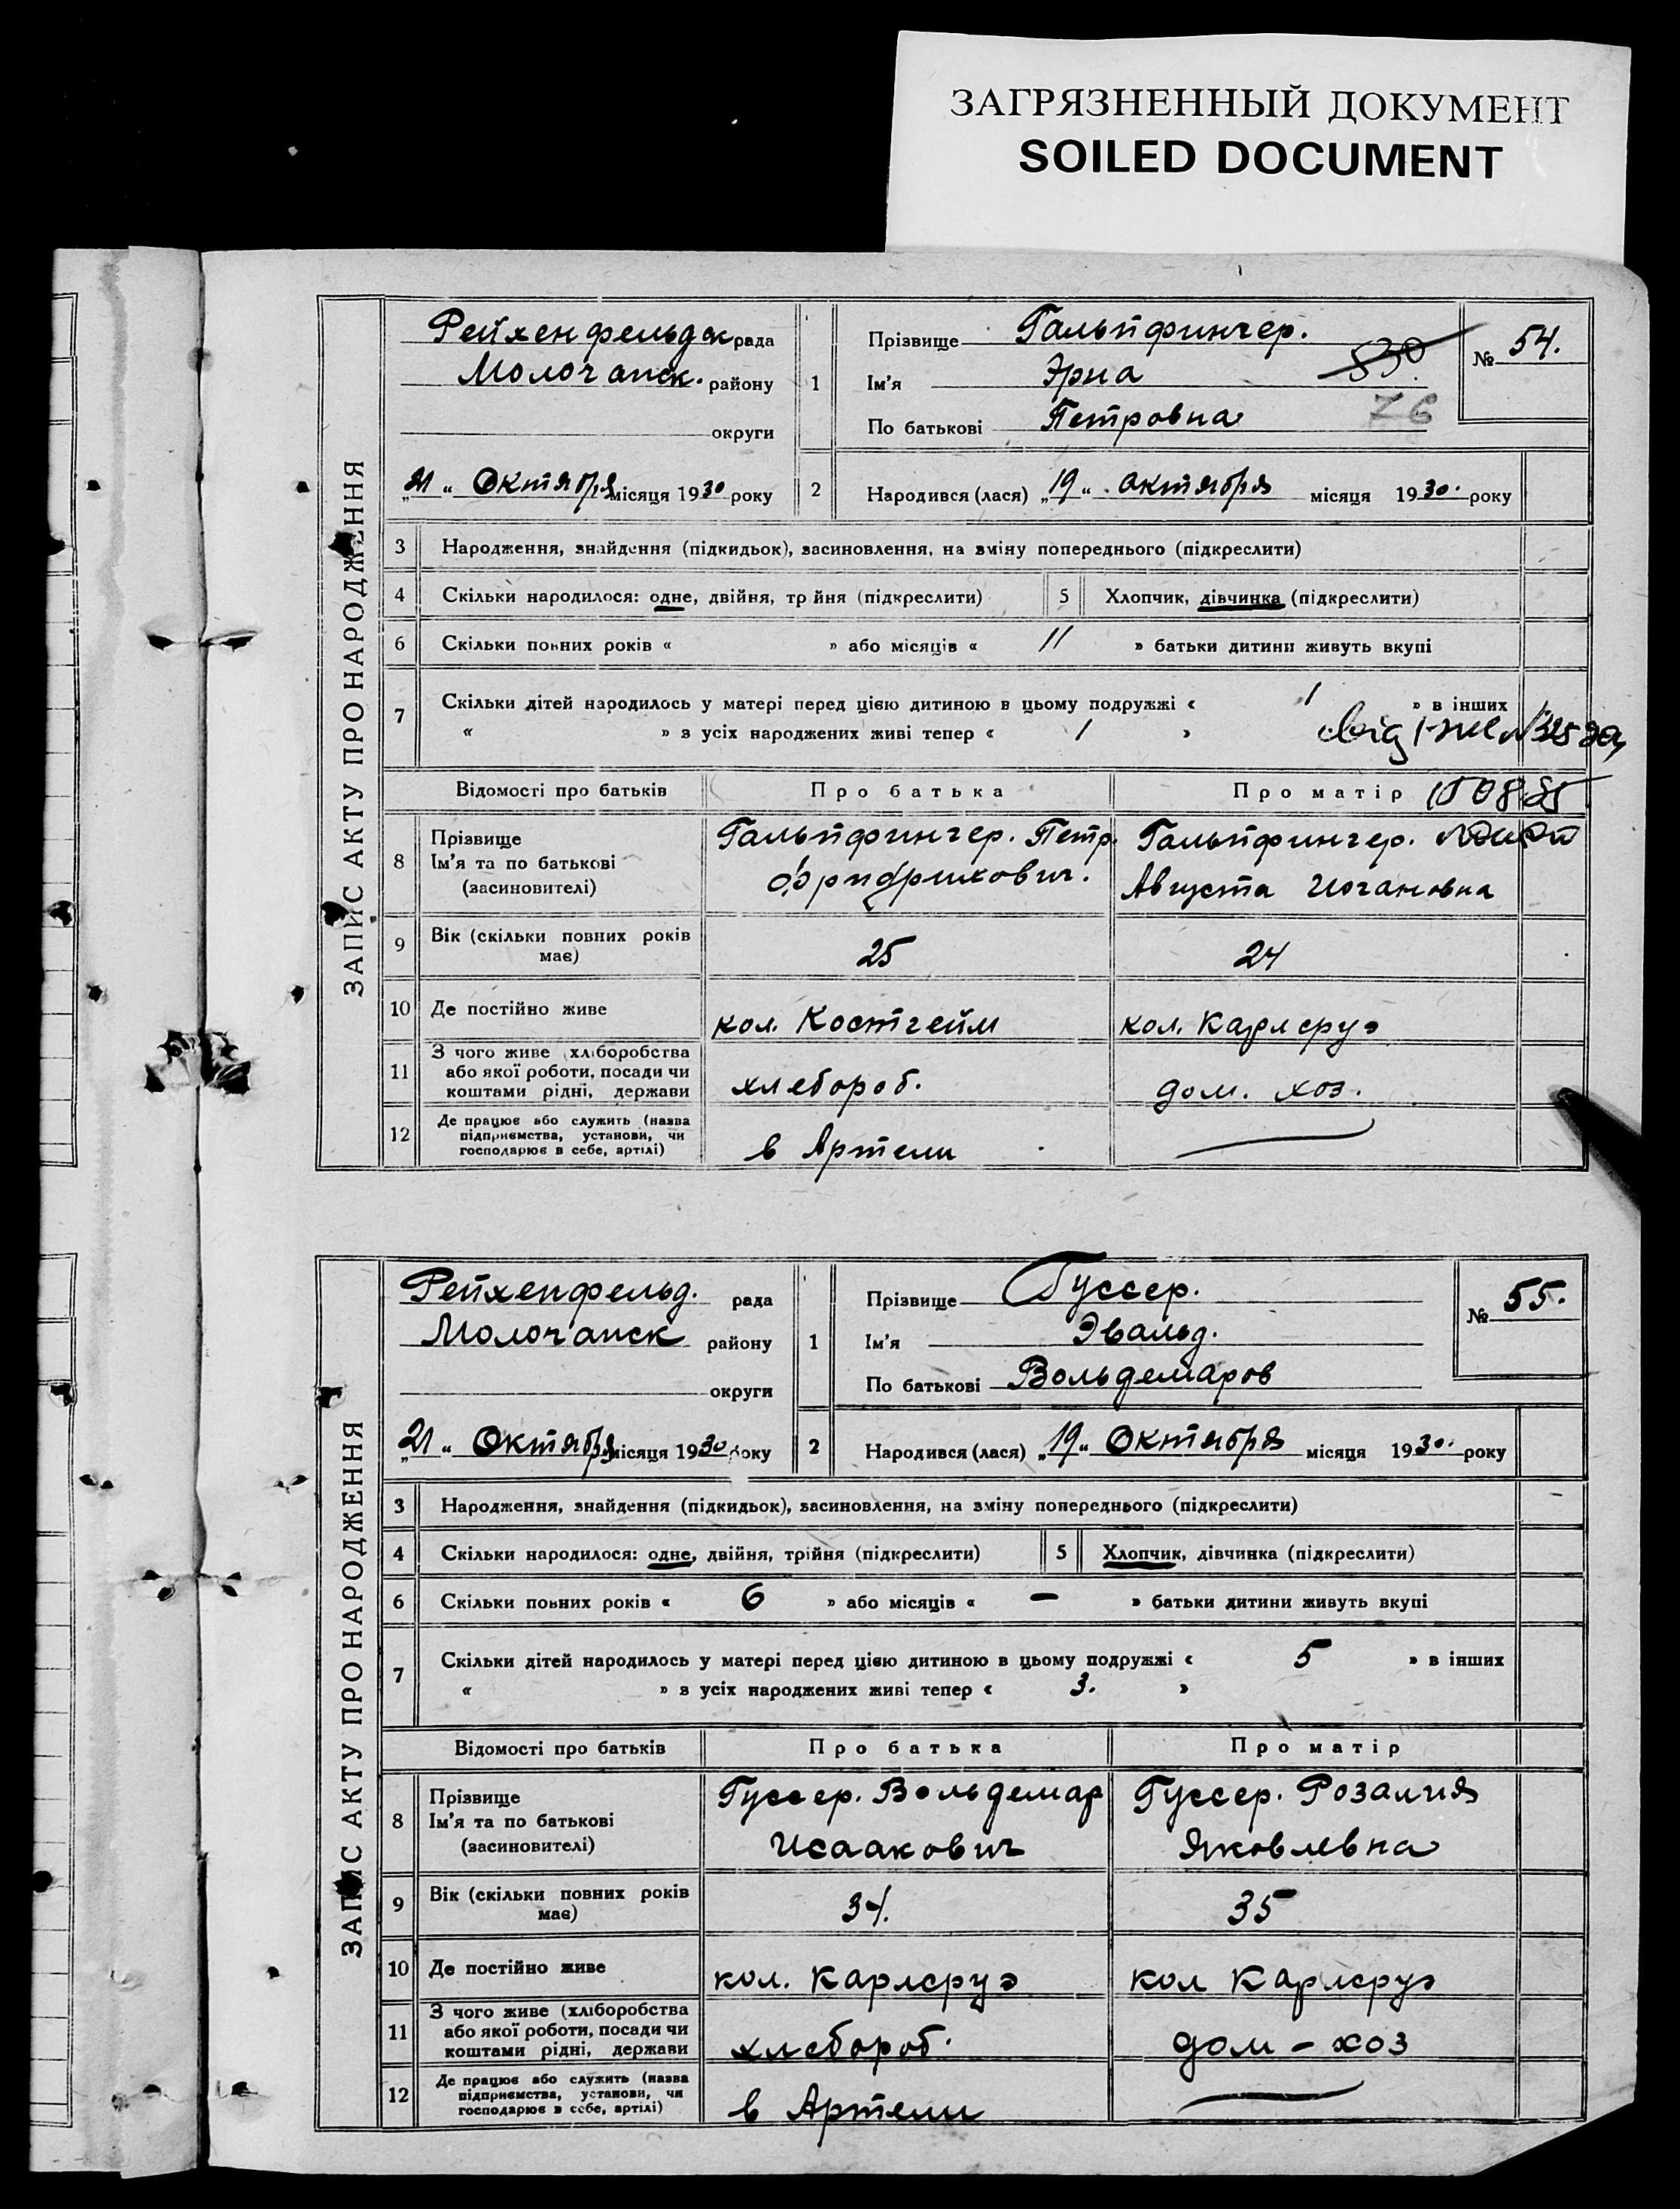 ЗАГРЯЗНЕННЫЙ ДОКУМЕНТ
SOILED DOCUMENT
ЗАПИС АКТУ ПРО НАРОДЖЕННЯ
Рейхенфельдск рада
Молочанск. району
округи
„21“ Октября місяця 1930 року
1
Прізвище Гальпфингер.
Ім'я Эрна
По батькові Петровна
830
76
№ 54.
2
Народився (лася) „19“ октября місяця 1930. року
3 Народження, знайдення (підкидьок), засиновлення, на зміну попереднього (підкреслити)
4 Скільки народилося: одне, двійня, трійня (підкреслити)
5 Хлопчик, дівчинка (підкреслити)
6 Скільки повних років « » або місяців « 11 » батьки дитини живуть вкупі
7 Скільки дітей народилось у матері перед цією дитиною в цьому подружжі « 1 » в інших
« » з усіх народжених живі тепер « 1 »
Відомості про батьків
Про батька
Про матір
8 Прізвище
Ім'я та по батькові
(засиновителі)
Гальпфингер. Петр.
Фридрихович.
Гальпфингер.
Августа Иогановна
9 Вік (скільки повних років
має)
25
24
10 Де постійно живе
кол. Костгейм
кол. Карлсруэ
11 З чого живе (хліборобства
або якої роботи, посади чи
коштами рідні, держави
хлебороб.
дом. хоз.
12 Де працює або служить (назва
підприємства, установи, чи
господарює в себе, артілі)
в Артели
ЗАПИС АКТУ ПРО НАРОДЖЕННЯ
Рейхенфельд. рада
Молочанск району
округи
„21“ Октября місяця 1930 року
1
Прізвище Гуссер.
Ім'я Эвальд.
По батькові Вольдемаров
№ 55.
2
Народився (лася) „19“ Октября місяця 1930. року
3 Народження, знайдення (підкидьок), засиновлення, на зміну попереднього (підкреслити)
4 Скільки народилося: одне, двійня, трійня (підкреслити)
5 Хлопчик, дівчинка (підкреслити)
6 Скільки повних років « 6 » або місяців « — » батьки дитини живуть вкупі
7 Скільки дітей народилось у матері перед цією дитиною в цьому подружжі « 5 » в інших
« » з усіх народжених живі тепер « 3. »
Відомості про батьків
Про батька
Про матір
8 Прізвище
Ім'я та по батькові
(засиновителі)
Гуссер. Вольдемар
Исаакович
Гуссер. Розалия
Яковлевна
9 Вік (скільки повних років
має)
34.
35
10 Де постійно живе
кол. Карлсруэ
кол Карлсруэ
11 З чого живе (хліборобства
або якої роботи, посади чи
коштами рідні, держави
хлебороб.
дом - хоз
12 Де працює або служить (назва
підприємства, установи, чи
господарює в себе, артілі)
в Артели